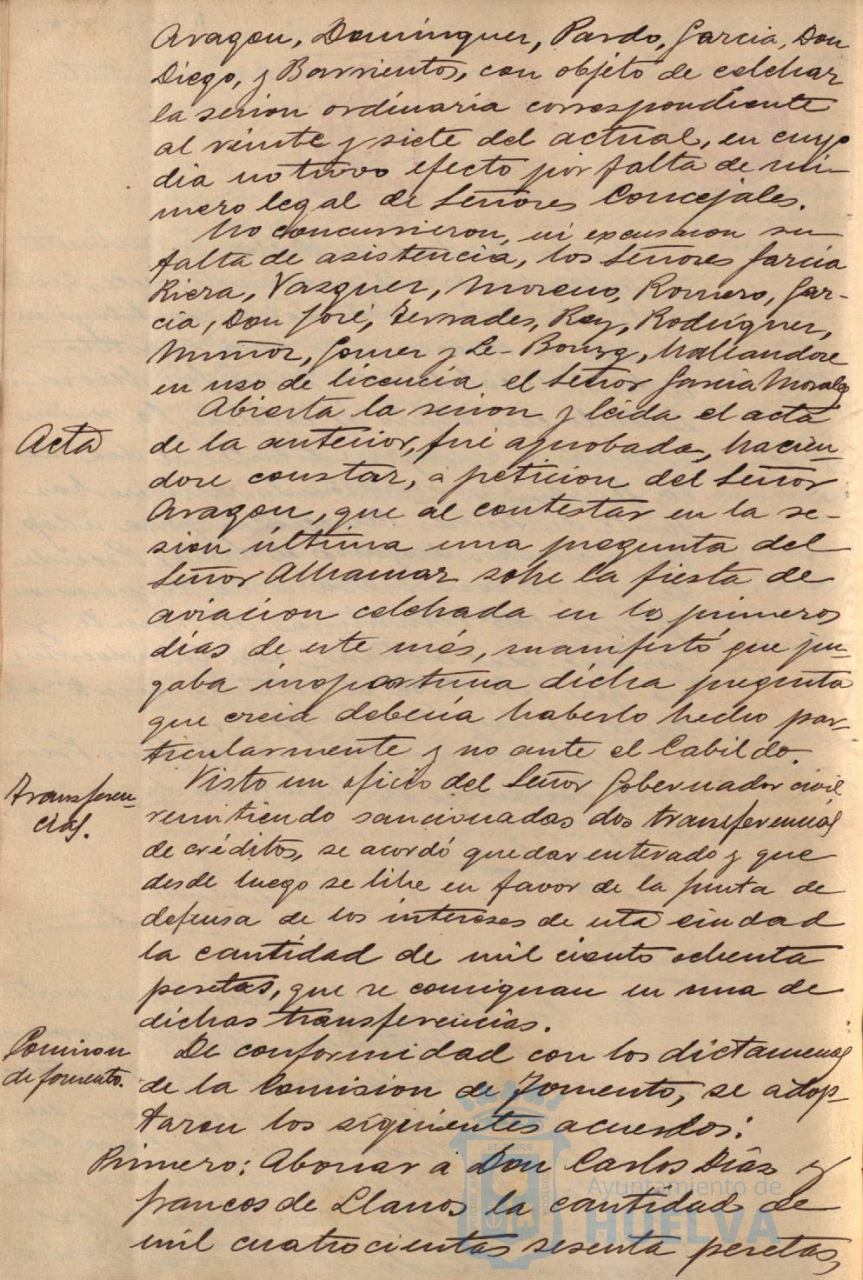 Aragon, Dominguez, Pardo, Garcia, Don
Diego, y Barrientos, con objeto de celebrar
la sesion ordinaria correspondiente
al veinte y siete del actual, en cuyo
dia no tuvo efecto por falta de nú-
mero legal de Señores Concejales.
No concurrieron, ni excusaron su
falta de asistencia, los Señores Garcia
Riera, Vazquez, Moreno, Romero, Gar-
cia, Don José, Terrades, Rey, Rodríguez,
Muñoz, Gomez y Le-Bourg, hallandose
en uso de licencia el Señor Garcia Morales
Acta
Abierta la sesion y leida el acta
de la anterior, fué aprobada, hacien-
dose constar, a peticion del Señor
Aragon, que al contestar en la se-
sion última una pregunta del
Señor Alhamar sobre la fiesta de
aviacion celebrada en los primeros
días de este més, manifestó que juz-
gaba inoportuna dicha pregunta
que creia debería haberlo hecho par-
ticularmente y no ante el Cabildo.
Transferen-
cias.
Visto un oficio del Señor Gobernador civil
remitiendo sancionadas dos transferencias
de créditos, se acordó quedar enterado y que
desde luego se libre en favor de la junta de
defensa de los intereses de esta ciudad
la cantidad de mil ciento ochenta
pesetas, que se consignan en una de
dichas transferencias.
Comision
de fomento.
De conformidad con los dictamenes
de la Comision de Fomento, se adop-
taron los siguientes acuerdos:
Primero: Abonar a Don Carlos Díaz y
Francos de Llanos la cantidad de
mil cuatrocientas sesenta pesetas,
Ayuntamiento de
HUELVA